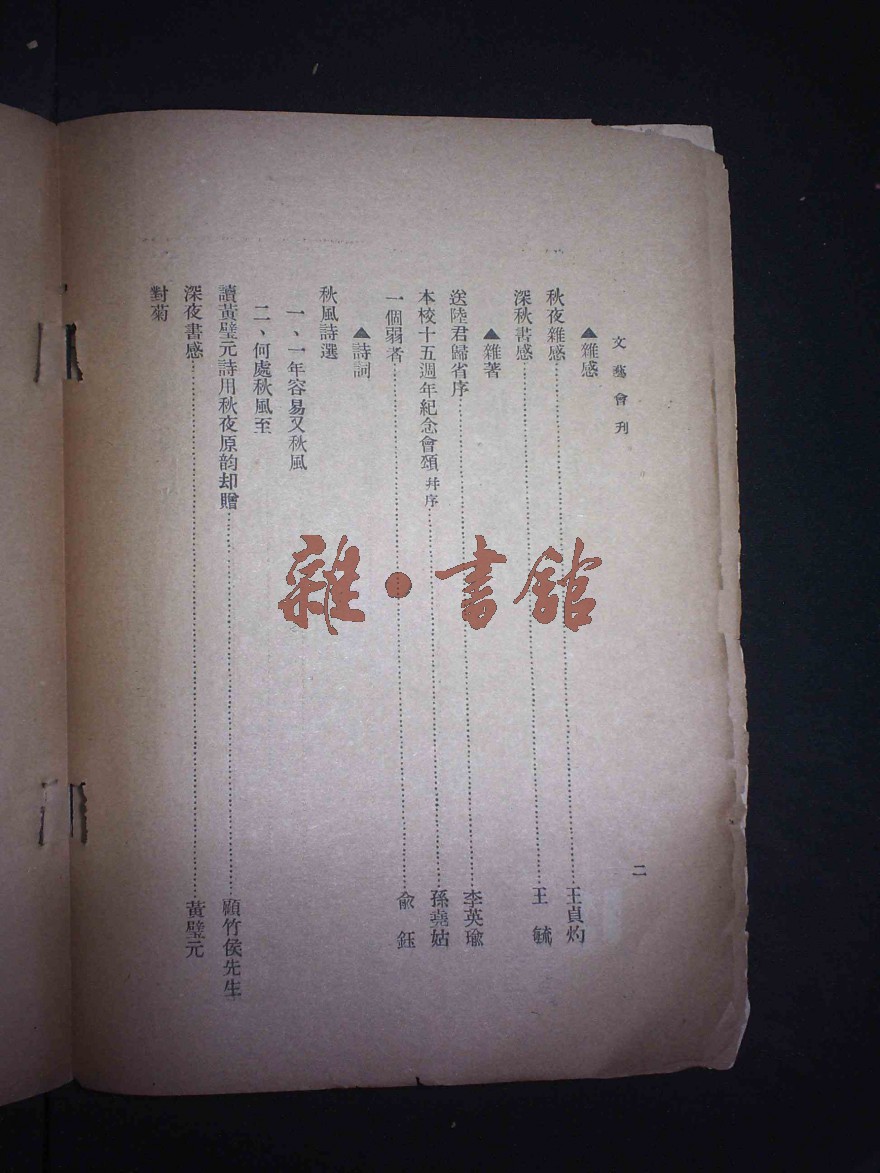 文藝會刊
二
▲雜感
秋夜雜感……王貞灼
深秋書感……王毓
▲雜著
送陸君歸省序……李英瑜
本校十五週年紀念會頌 幷序……孫堯姑
一個弱者……俞鈺
▲詩詞
秋風詩選
一、一年容易又秋風
二、何處秋風至
讀黃璧元詩用秋夜原韵却贈……顧竹侯先生
深夜書感……黃璧元
對菊
雜•書館